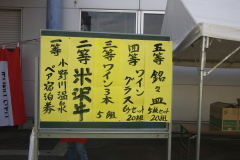 一等 小野川温泉
ペア宿泊券
二等 米沢牛
三等 ワイン3本
5組
四等 ワイン
グラス
6セット
20組
五等 銘々皿
5枚セット
20組